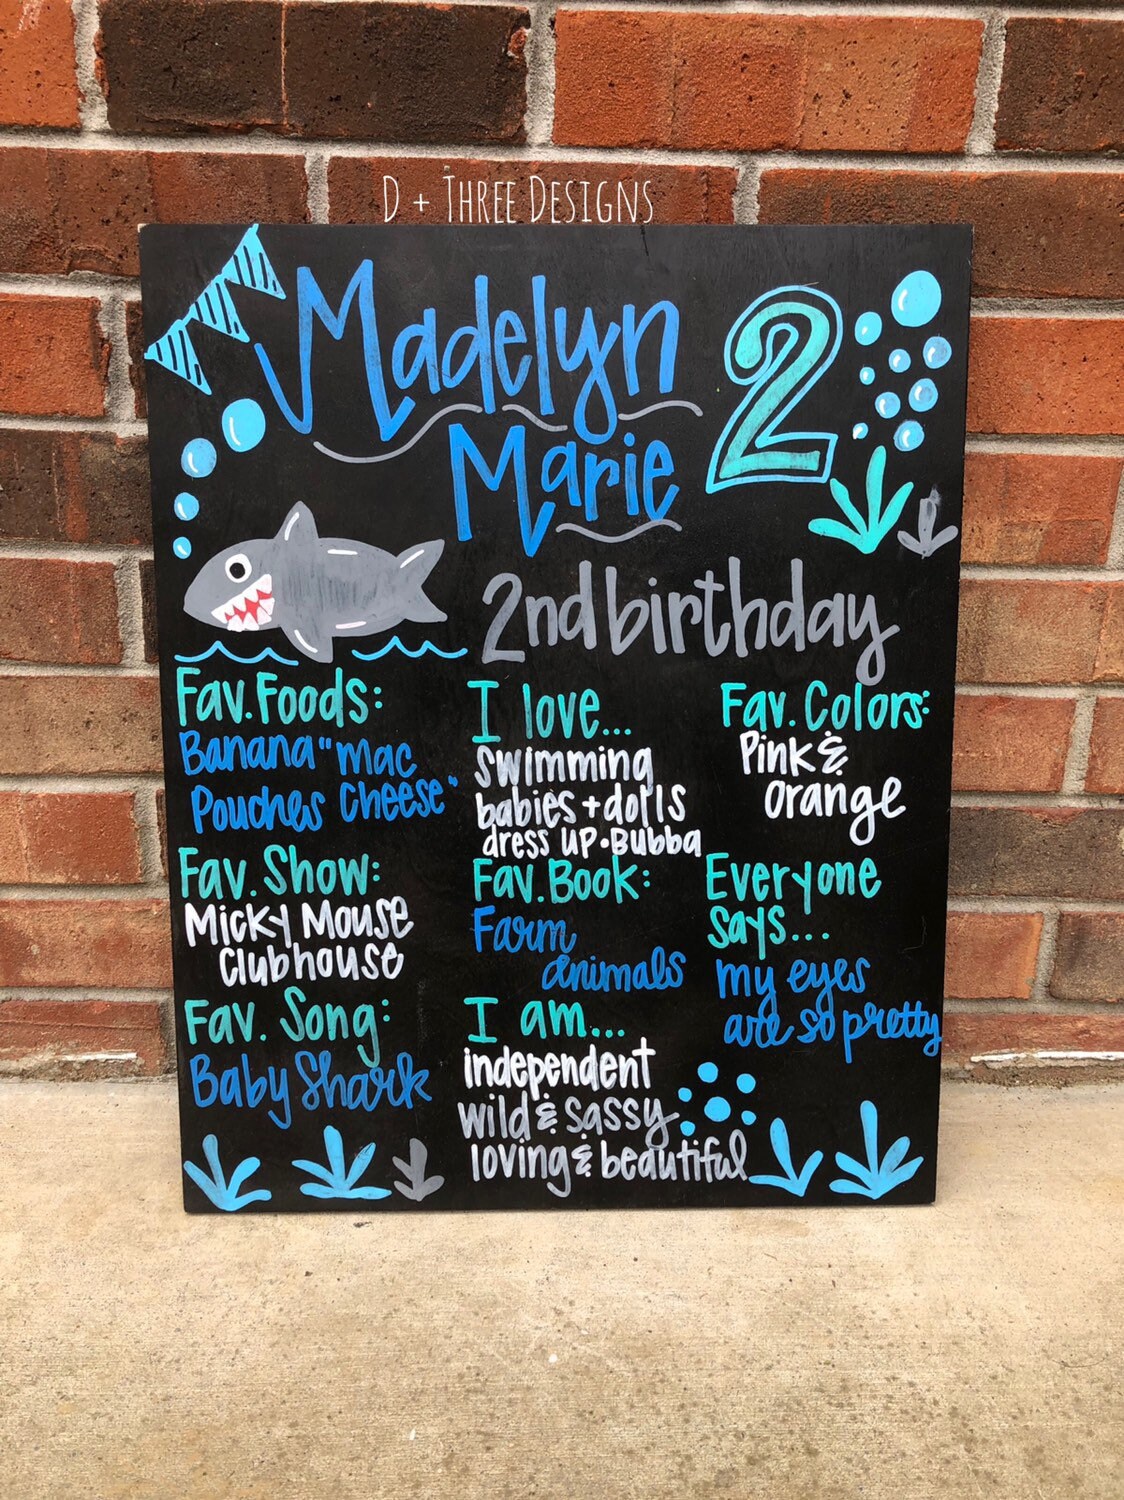 D + THREE DESIGNS
Madelyn
Marie
2
2nd birthday
Fav. Foods:
Banana "mac
Pouches cheese"
Fav. Show:
Micky Mouse
clubhouse
Fav. Song:
Baby Shark
I love...
swimming
babies + dolls
dress up • Bubba
Fav. Book:
Farm
animals
I am...
independent
wild & sassy
loving & beautiful
Fav. Colors:
Pink &
orange
Everyone
says...
my eyes
are so pretty